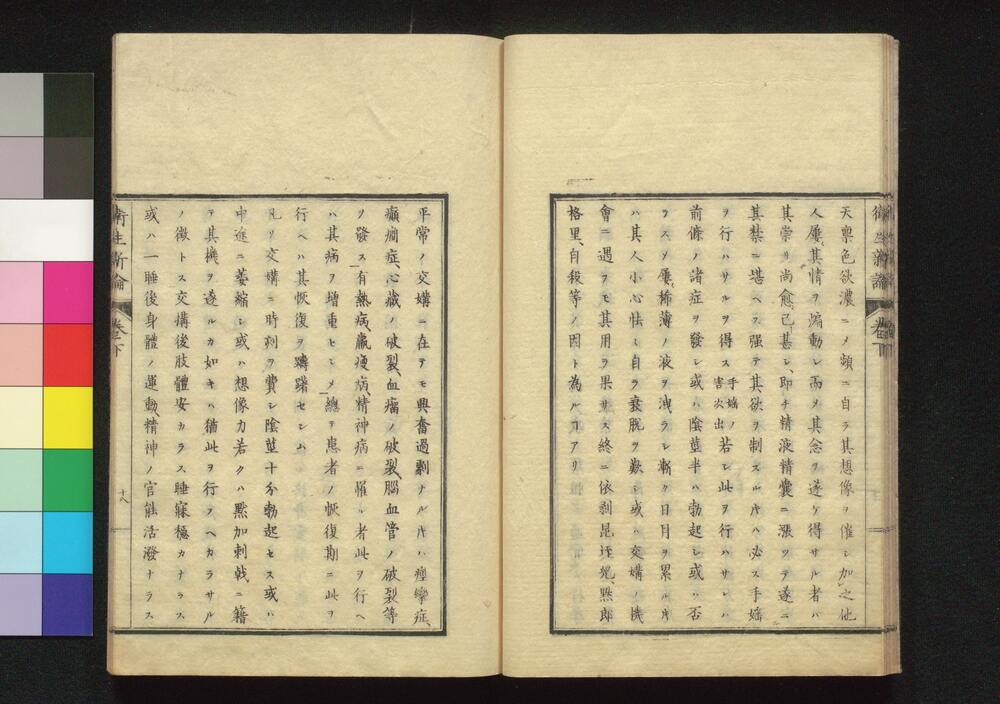 衛生新論 卷下
天禀色欲濃ニメ頻ニ自ラ其想像ヲ催シ加之他
人屢其情ヲ煽動シ而メ其念ヲ遂ケ得サル者ハ
其祟リ尚愈己甚シ、即チ精液精囊ニ漲ツテ遂ニ
其禁ニ堪ヘス强テ其欲ヲ制スルㇳキハ必ス手婬
ヲ行ハサルヲ得ス手婬ノ害次出若シ此ヲ行ハサレハ
前條ノ諸症ヲ發シ或ハ陰莖半ハ勃起シ或ハ否
ラスメ屢稀薄ノ液ヲ洩ラシ漸ク日月ヲ累ルㇳキ
ハ其人小心怯ミ自ラ衰脫ヲ歎シ或ハ交媾ノ機
會ニ遇フモ其用ヲ果サス終ニ依剥昆垤兒、㸃郎
格里、自殺等ノ因ト為ルヿアリ
平常ノ交媾ニ在テモ興奮過剩ナルㇳキハ痙攣症、
癲癇症、心臟ノ破裂、血瘤ノ破裂、腦血管ノ破裂等
ヲ發ス有熱病、羸瘦病、精神病ニ罹ル者此ヲ行ヘ
ハ其病ヲ增重セシメ總テ患者ノ恢復期ニ此ヲ
行ヘハ其恢復ヲ躊躇セシム
凡ソ交媾ニ時刻ヲ費シ陰莖十分勃起セス或ハ
中途ニ萎縮シ或ハ想像力若クハ㸃加刺戟ニ藉
テ其機ヲ遂ルカ如キハ猶此ヲ行フヘカラサル
ノ徵トス交媾後肢體安カラス睡寐穩カナラス
或ハ一睡後身體ノ運動、精神ノ官能活潑ナラス
衛生新論 卷下 十八